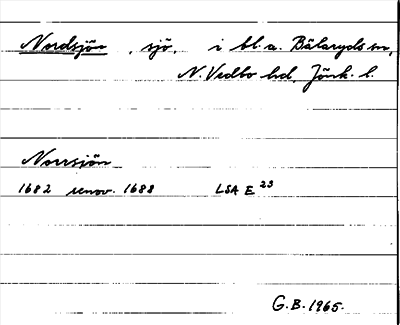 Nordsjön, sjö, i bl.a. Bälaryds sn,
N. Vedbo hd, Jönk. l.
Norrsjön
1682 renov. 1688 LSA E 23
G.B. 1965.